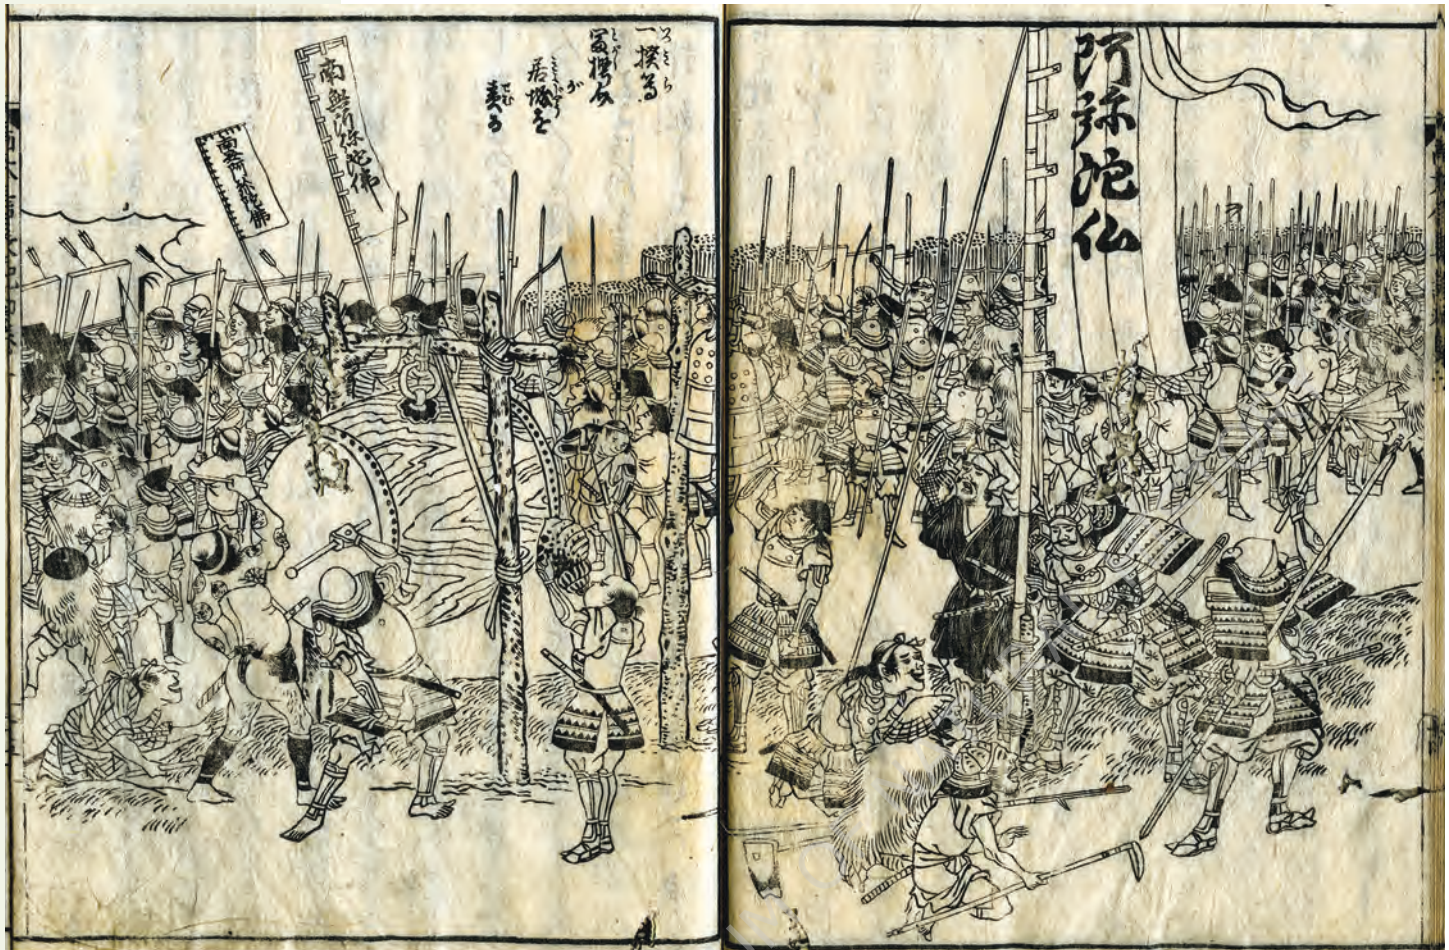 阿弥陀仏
一揆等
富樫
が
居城を
責る
南無阿弥陀佛
南無阿弥陀佛